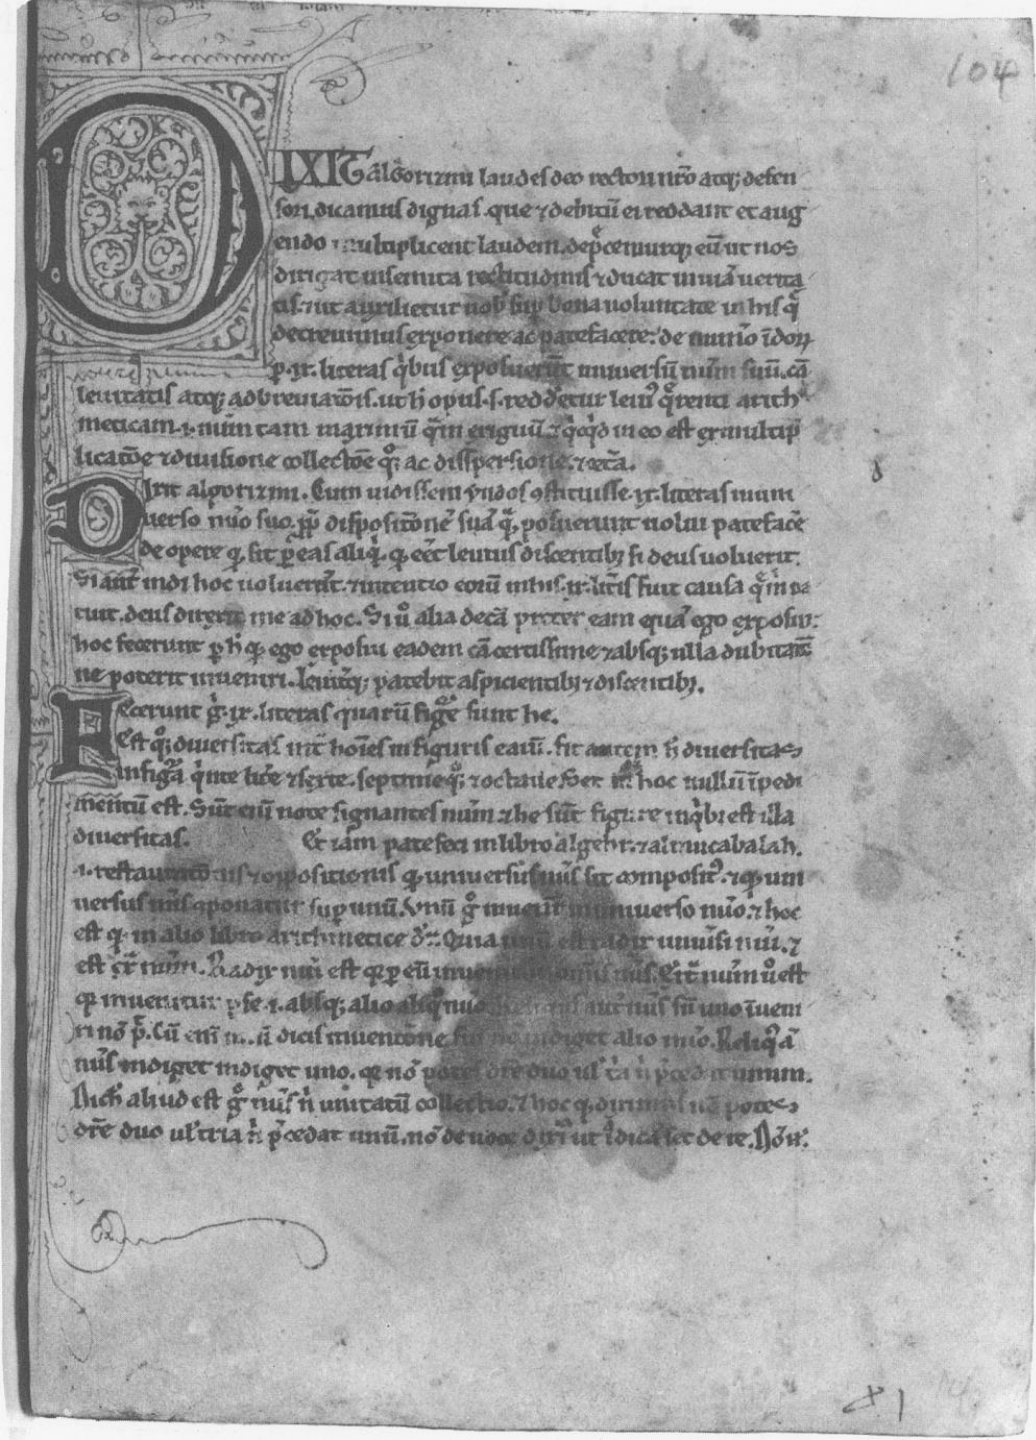 104
DIXIT algorizmi laudes deo rectori nr̄o atq; defen
sori. dicamus dignas. que ⁊ debitū ei reddant et aug
endo multiplicent laudem. dep̄cemurq; eū ut nos
dirigat in semita rectitudinis ⁊ ducat in uiā uerita
tis. ⁊ ut auxilietur nob̄ sup bona uoluntate in his q̄
decreuimus exponere ac patefacere: de num̄o īdoꝝ
p .ix. literas q̇bus exposuerūt uniuersū nūm suū. cā
leuitatis atq; adbreuiatōis. ut h̄ opus .s. redd̄etur leui᾽ q̄renti arith
meticam .i. nūm tam maximū q̄m exiguū. ⁊ q̇cq̇d in eo est ex multip
licatōe ⁊ diuisione collectōe q̊; ac dispersione. ⁊ cet̄a.
Dixit algorizmi. Cum uidissem yndos ɔstituisse .ix. literas in uni
uerso nūo suo. pp̄ dispositōnē suā q̄ posuerunt uolui patefac̄e
de opere q̄ fit p̄ eas aliq̇. q̄ eēt leuius discentibꝫ si deus uoluerit.
Si aūt indi hoc uoluerūt. ⁊ intentio eorū in his .ix. lit̄is fuit causa q̄ m̄ pa
tuit. deus direxit me ad hoc. Si ů alia de cā preter eam quā ego exposui:
hoc fecerunt p h̄ q̄ ego exposui eadem cā certissime ⁊ absq; ulla dubitatiō
ne poterit inueniri. leuit̄q; patebit aspicientibꝫ ⁊ discentibꝫ.
Fecerunt g̊ .ix. literas quarū figūe sunt he.
Est q̊; diuersitas int̄ hoīes in figuris earū. fit autem h̄ diuersitas
in figūa q̇nte lit̄e ⁊ sexte. septimeq̊; ⁊ octaue. Set in hoc nullū īpedi
mentū est. Sūt enī note signantes nūm. ⁊ he sūt figure in q̇bꝫ est illa
diuersitas. Et iam patefeci in libro algebr. ⁊ almucabalah.
.i. restauratōnis ⁊ oppositionis q̄ uniuersus nūs sit composit᾽. ⁊ q̄ uni
uersus nūs ɔponatur sup unū. Vnū g̊ inuenit̄ in uniuerso nūo. ⁊ hoc
est q̄ in alio libro arithmetice d̄r. Quia unū est radix uniūsi nūi. ⁊
est ext̄ nūm. Radix nūi est q̄ p eū inuenit̄ omīs nūs. Ext̄ nūm ů est
q̄ inuenitur p se .i. absq; alio aliq̊ nūo. Reliquus aūt nūs sn̄ uno īueni
ri nō p̄t. Cū enī unū dicis inuentōne sui nō indiget alio nūo. Reliq̊᾽ aūt
nūs indiget indiget uno. q̄ nō potes dr̄e duo ul̄ tria n̄ p̄cedat unum.
Nich̄ aliud est g̊ nūs n̄ unitatū collectio. ⁊ hoc q̄ diximus nō potes
dr̄e duo ul̄ tria n̄ p̄cedat unū. nō de uoce diximus ut īdicā set de re. Nō n̄